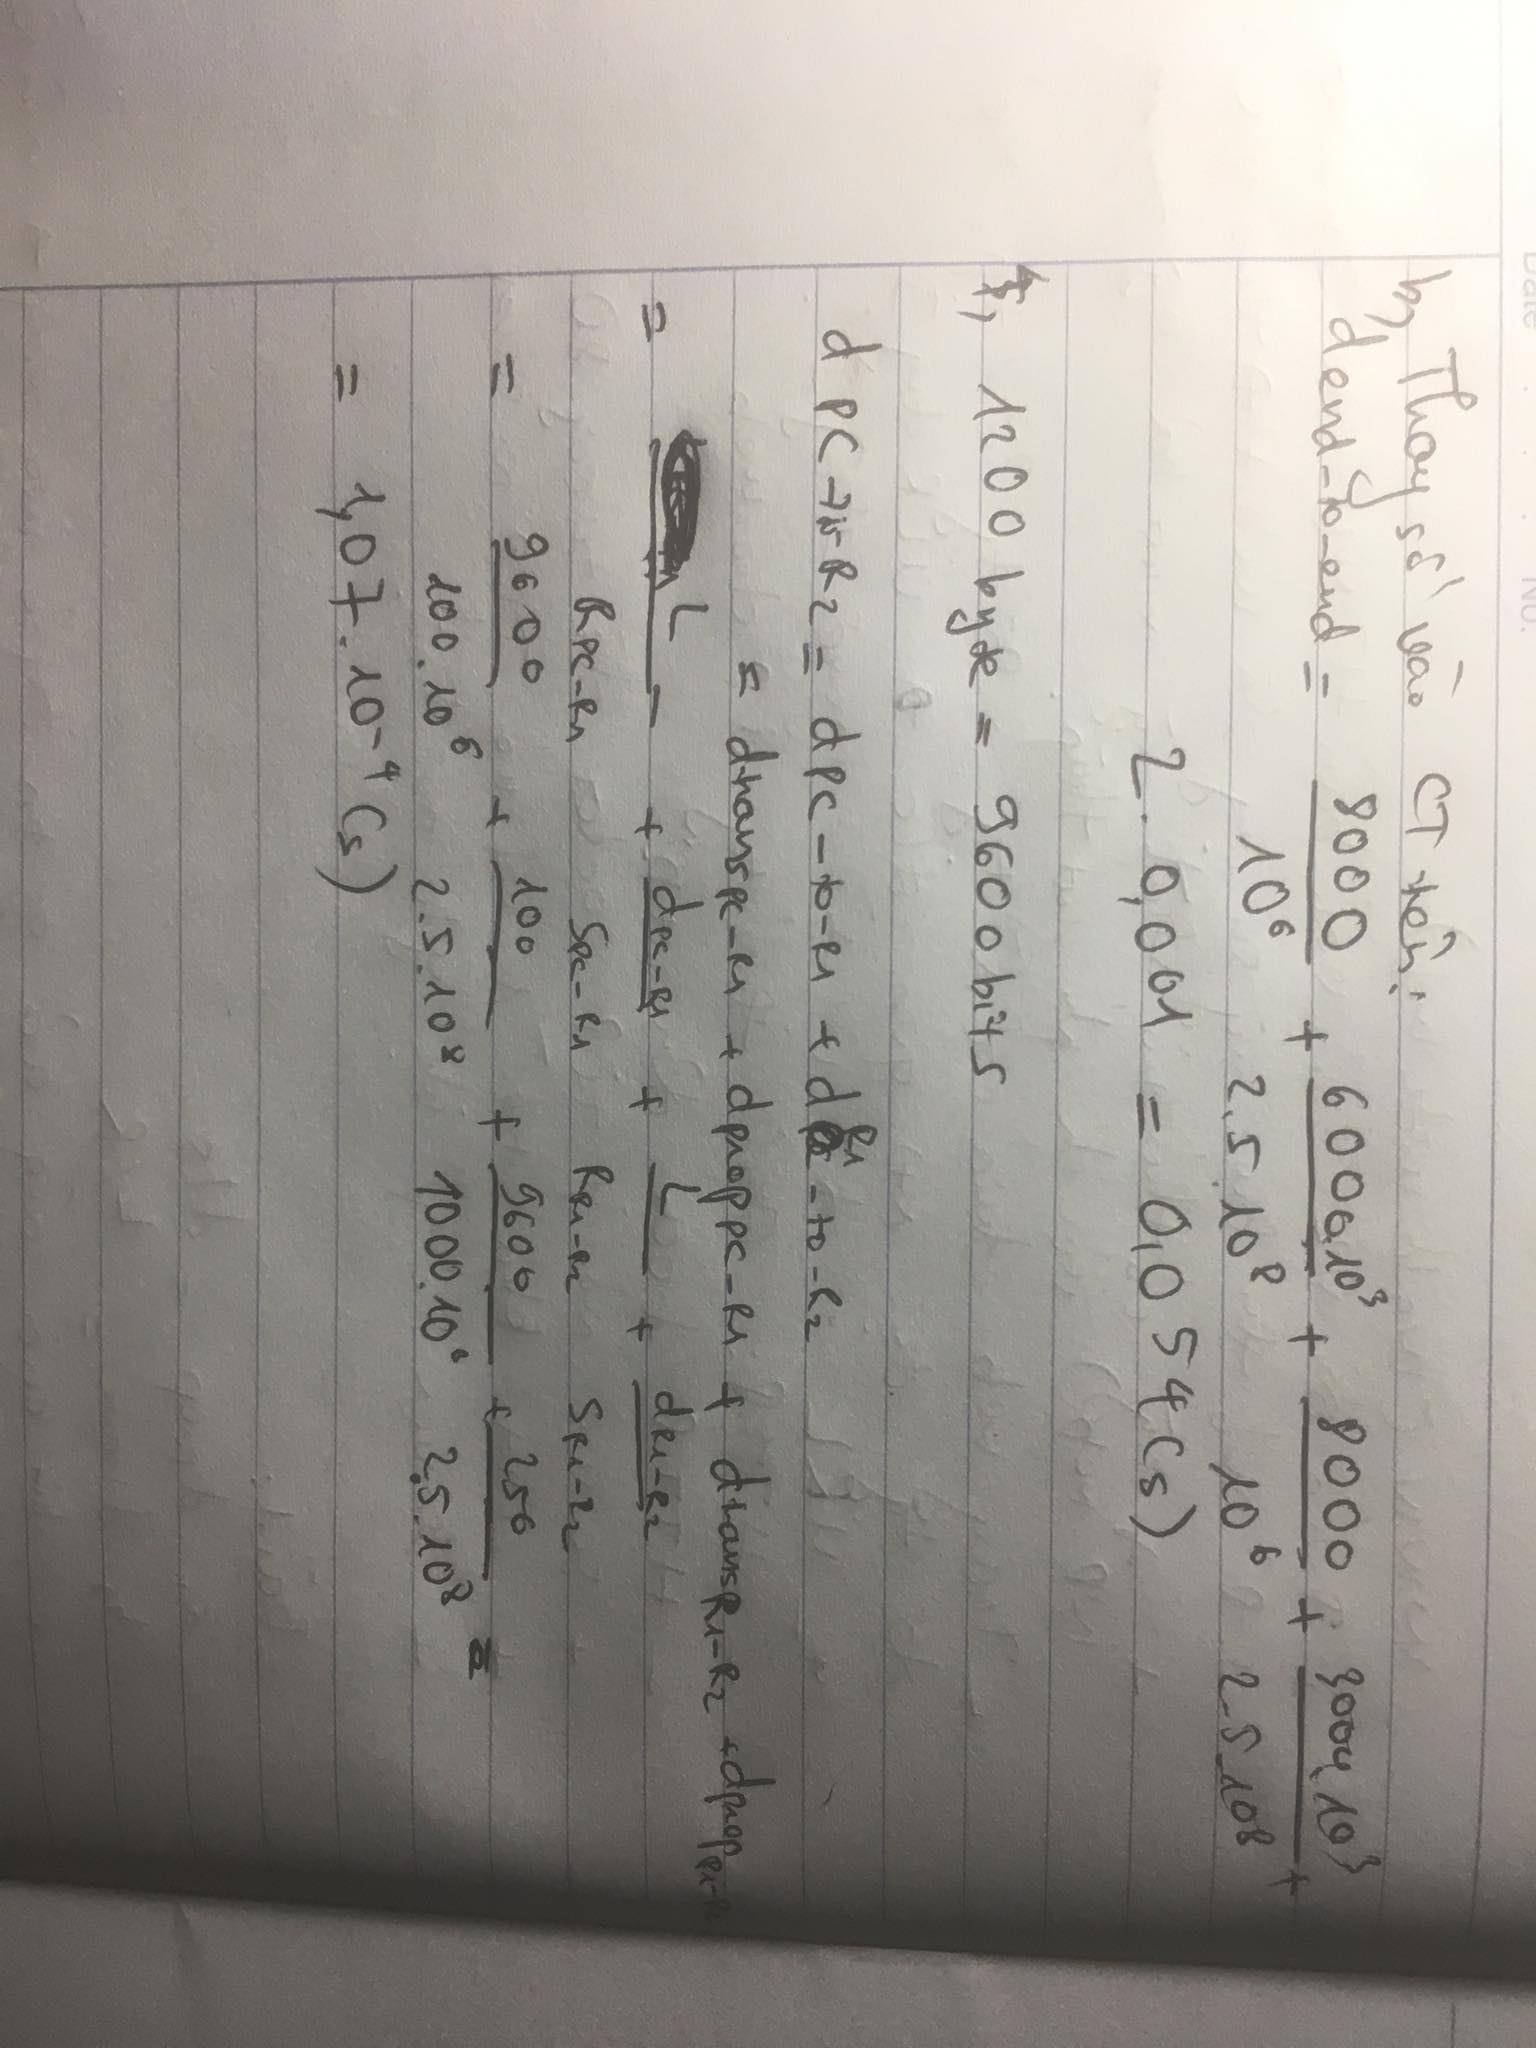 Date . . . No.
b, Thay số vào CT trên:
dend-to-end = 8000/10⁶ + 6000.10³/2.5.10⁸ + 8000/10⁶ + 3000.10³/2.5.10⁸ +
2. 0,001 = 0,054 (s)
1200 byte = 9600 bits
d PC-to-R2 = dPC-to-R1 + dR1-to-R2
= dtransPC-R1 + dpropPC-R1 + dtransR1-R2 + dpropR1-R2
= L/RPC-R1 + dPC-R1/SPC-R1 + L/RR1-R2 + dR1-R2/SR1-R2
= 9600/100.10⁶ + 100/2.5.10⁸ + 9600/1000.10⁶ + 250/2.5.10⁸ =
= 1,07.10⁻⁴ (s)